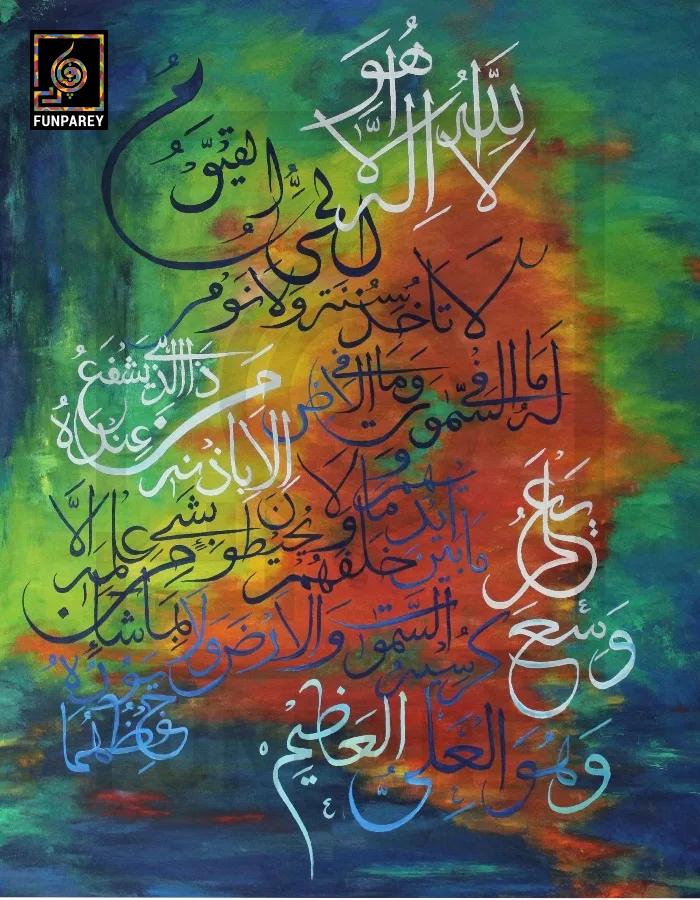 FUNPAREY
الله لا اله الا هو
الحی القیوم
لا تاخذه سنة ولا نوم
له ما فی السموت وما فی الارض
من ذا الذی یشفع عنده
الا باذنه
یعلم ما بین ایدیهم وما
خلفهم ولا یحیطون بشیء من علمه الا
بما شاء
وسع کرسیه السموت والارض ولا
یؤده
حفظهما
وهو العلی العظیم